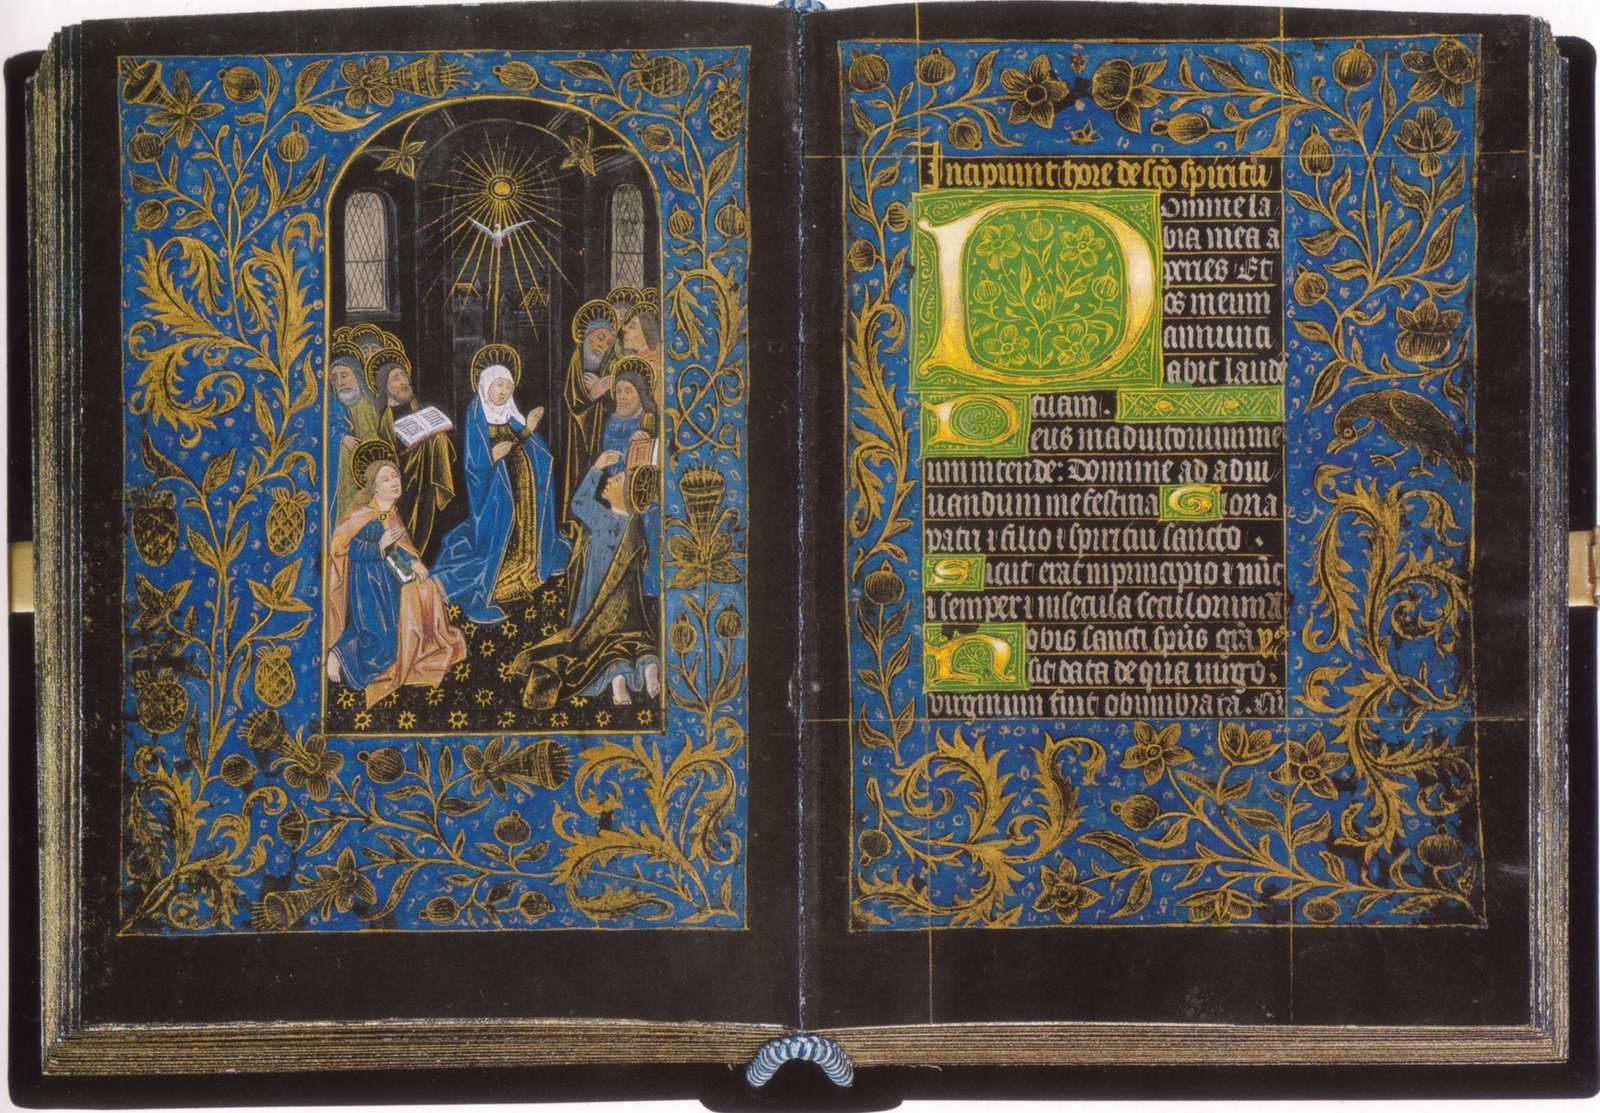 Incipiunt hore de sco spiritu
Domine la
bia mea a
peries Et
os meum
annunci
abit laudē
tuam.
Deus in adiutorium me
um intende: Domine ad adiu
uandum me festina Gloria
patri ⁊ filio ⁊ spiritui sancto.
Sicut erat in principio ⁊ nūc
⁊ semper ⁊ in secula seculorum A
Nobis sancti spūs grā
sit data de qua uirgo.
virginum fuit obumbrata. Cū